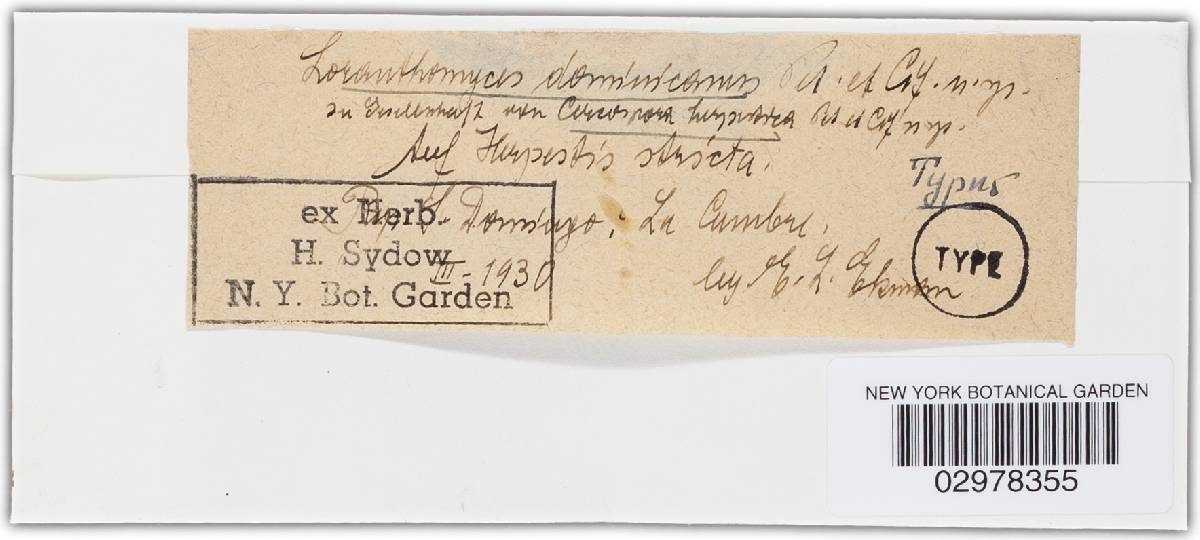 Loranthomyces dominicanus Pet. et Cif. n. sp.
in Gesellschaft von Cercospora herpestica Pet et Cif n sp.
Auf Herpestis stricta.
Typus
S. Domingo; La Cumbre,
III - 1930
leg E. L. Ekman
ex Herb.
H. Sydow
N. Y. Bot. Garden
TYPE
NEW YORK BOTANICAL GARDEN
02978355